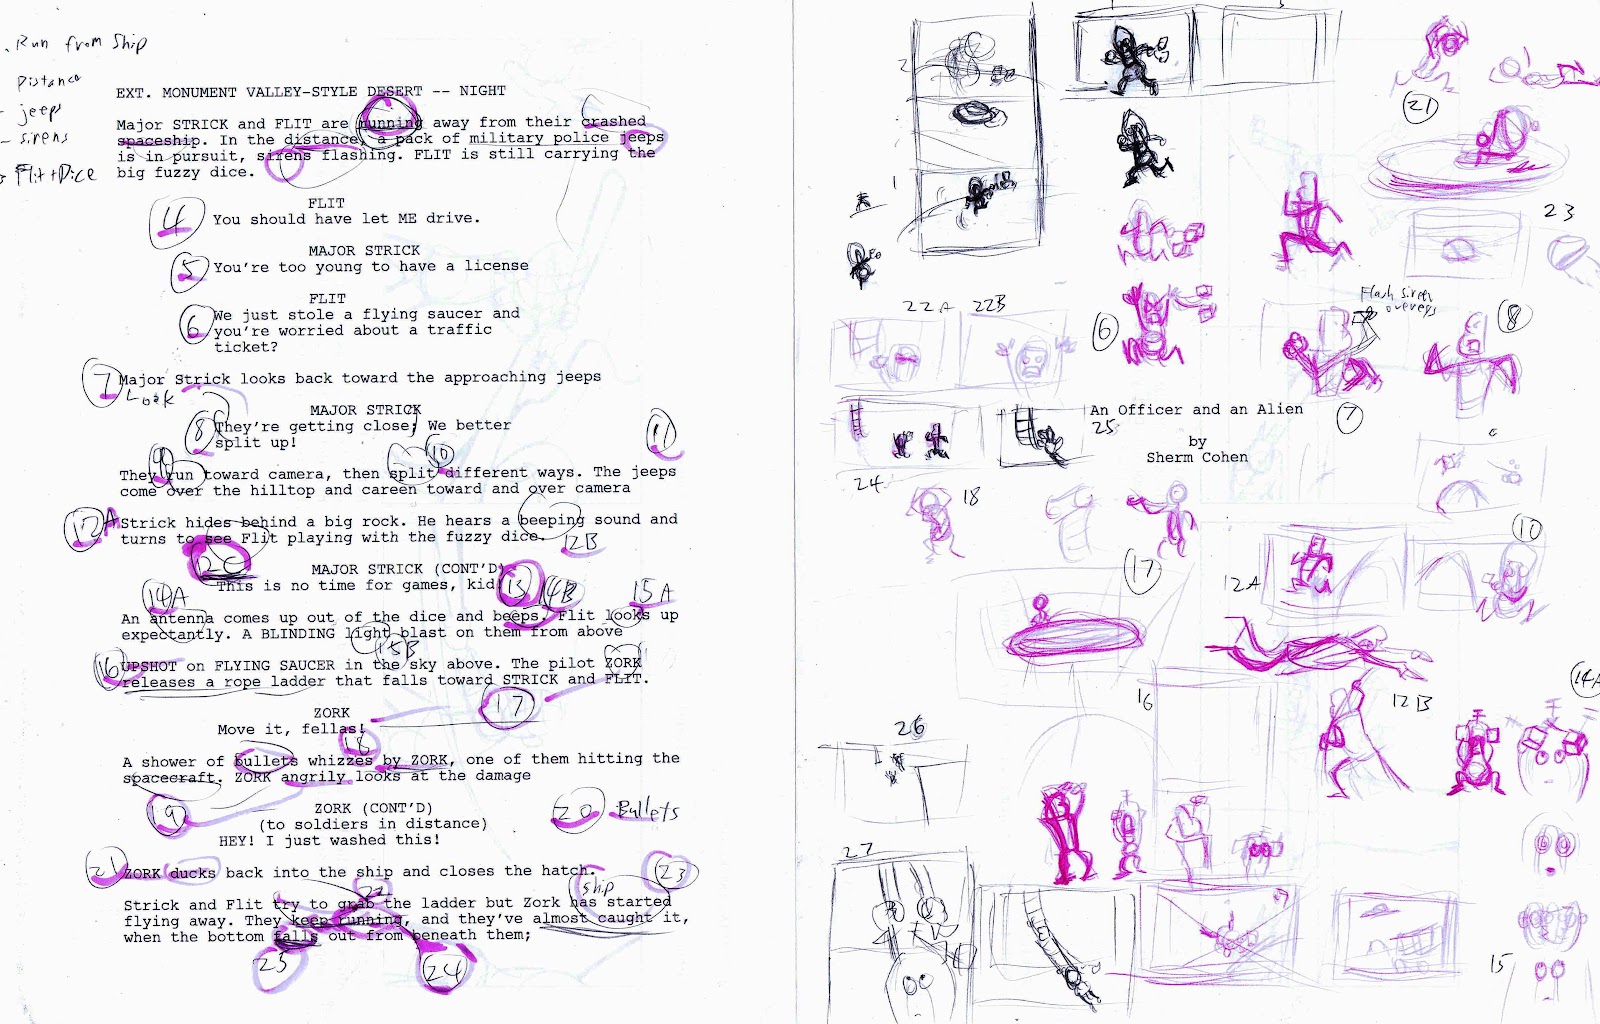 Run from Ship
Distance
- jeeps
- sirens
Flit + Dice
EXT. MONUMENT VALLEY-STYLE DESERT -- NIGHT
Major STRICK and FLIT are running away from their crashed
spaceship. In the distance, a pack of military police jeeps
is in pursuit, sirens flashing. FLIT is still carrying the
big fuzzy dice.
FLIT
4
You should have let ME drive.
MAJOR STRICK
5
You're too young to have a license
FLIT
6
We just stole a flying saucer and
you're worried about a traffic
ticket?
7
Major Strick looks back toward the approaching jeeps
Look
MAJOR STRICK
8
They're getting close; We better
split up!
11
9
10
They run toward camera, then split different ways. The jeeps
come over the hilltop and careen toward and over camera
12A
Strick hides behind a big rock. He hears a beeping sound and
turns to see Flit playing with the fuzzy dice.
12B
12C
MAJOR STRICK (CONT'D)
This is no time for games, kid!
13
14A
14B
15A
An antenna comes up out of the dice and beeps. Flit looks up
expectantly. A BLINDING light blast on them from above
15B
16
UPSHOT on FLYING SAUCER in the sky above. The pilot ZORK
releases a rope ladder that falls toward STRICK and FLIT.
17
ZORK
Move it, fellas!
18
A shower of bullets whizzes by ZORK, one of them hitting the
spacecraft. ZORK angrily looks at the damage
19
ZORK (CONT'D)
(to soldiers in distance)
HEY! I just washed this!
20 Bullets
21
ZORK ducks back into the ship and closes the hatch.
23
ship
22
Strick and Flit try to grab the ladder but Zork has started
flying away. They keep running, and they've almost caught it,
when the bottom falls out from beneath them;
25
24
2
1
21
23
22A
22B
6
Flash siren
over eyes
8
7
An Officer and an Alien
25
by
Sherm Cohen
24
18
10
17
12A
16
12B
14A
26
27
15